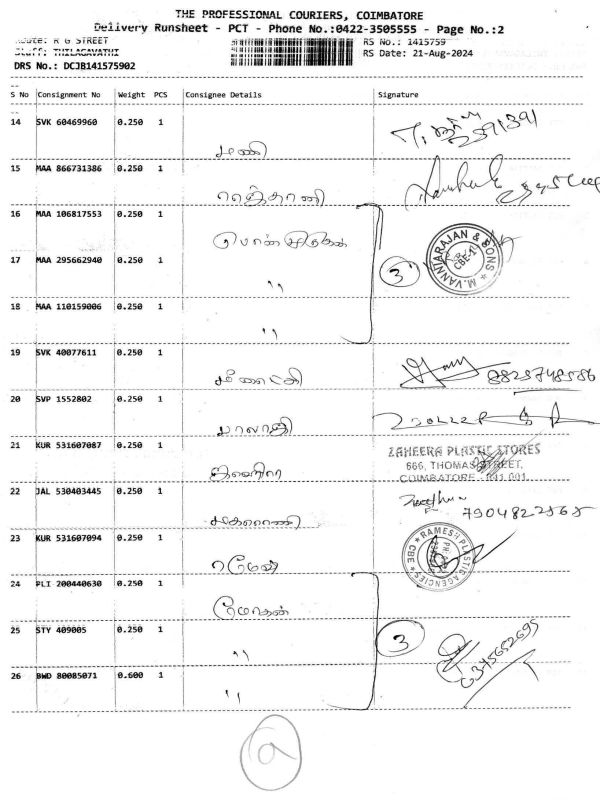 THE PROFESSIONAL COURIERS, COIMBATORE
Delivery Runsheet - PCT - Phone No.:0422-3505555 - Page No.:2
Route: R G STREET
Staff: THILAGAVATHI
DRS No.: DCJB141575902
RS No.: 1415759
RS Date: 21-Aug-2024
S No Consignment No Weight PCS Consignee Details Signature
14 SVK 60469960 0.250 1
மணி
15 MAA 866731386 0.250 1
16 MAA 106817553 0.250 1
பொன்முருகன்
17 MAA 295662940 0.250 1
"
3
M.VANNIARAJAN & SONS
CBE-1
18 MAA 110159006 0.250 1
"
19 SVK 40077611 0.250 1
மீனாட்சி
8825748586
20 SVP 1552802 0.250 1
பாலாஜி
21 KUR 531607087 0.250 1
ஜஹீரா
ZAHEERA PLASTIC STORES
666, THOMAS STREET,
COIMBATORE - 641 001.
22 JAL 530403445 0.250 1
மகாராணி
7904822565
23 KUR 531607094 0.250 1
ரமேஷ்
RAMESH PLASTIC AGENCIES
CBE
24 PLI 200440630 0.250 1
மோகன்
25 STY 409005 0.250 1
"
3
26 BWD 80085071 0.600 1
"
a